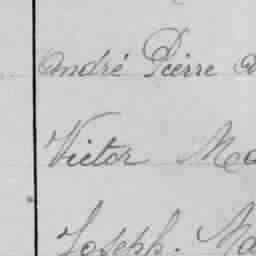 André Pierre
Victor
Joseph.